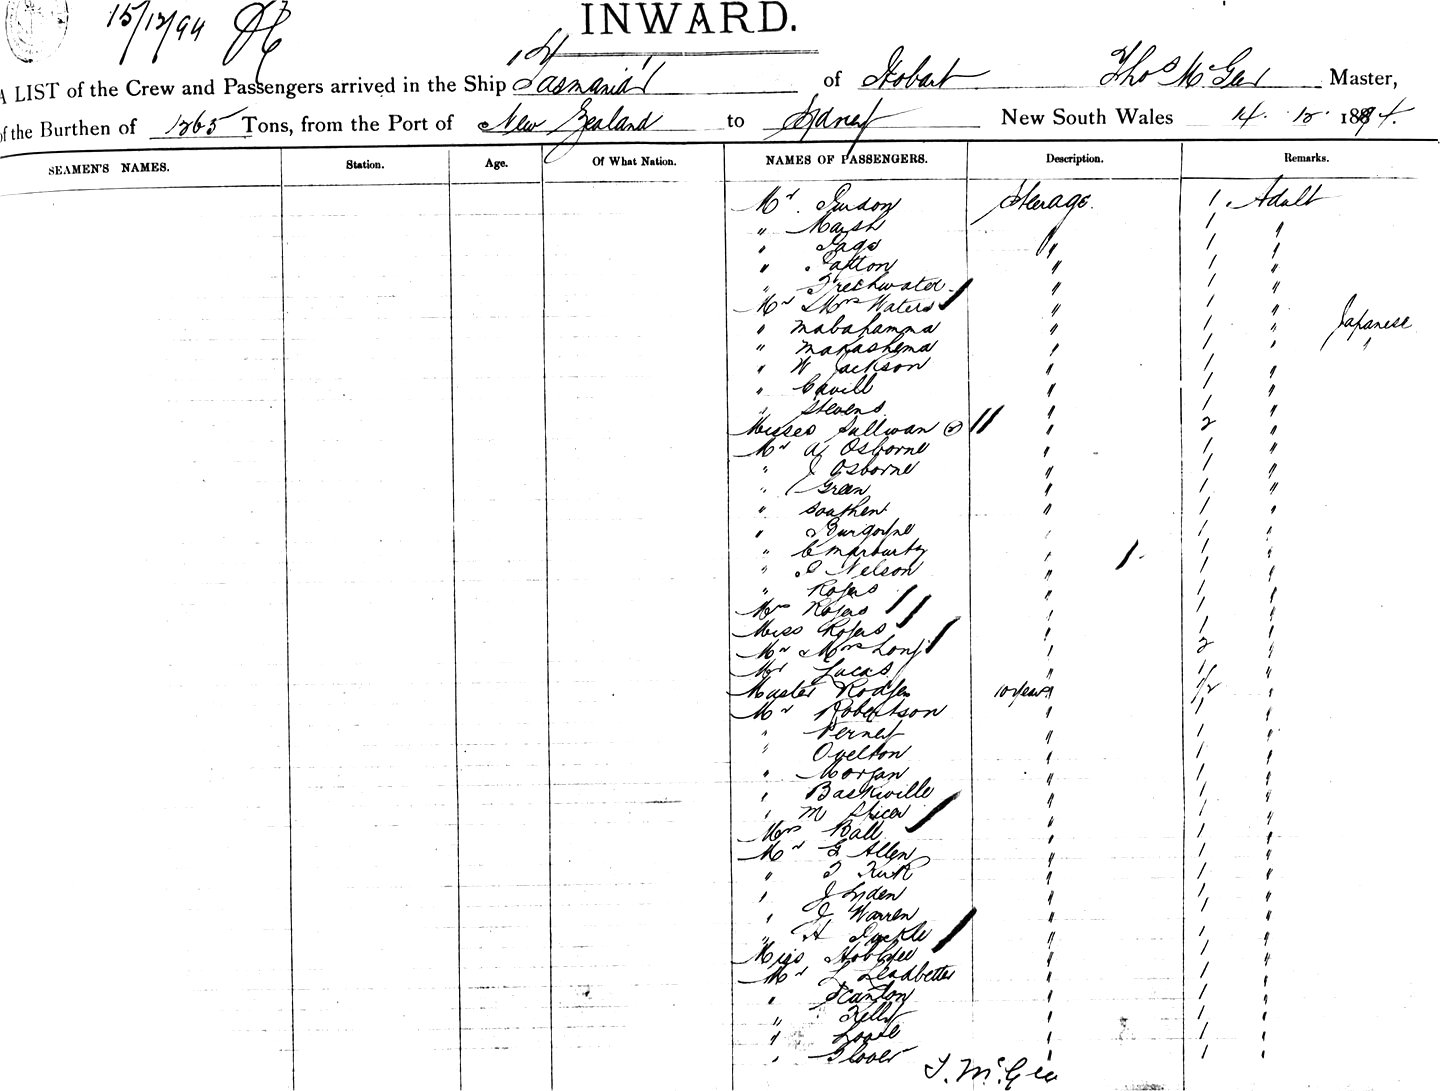 15/12/94
INWARD.
A LIST of the Crew and Passengers arrived in the Ship Tasmania of Hobart Thos McGee Master,
of the Burthen of 1265 Tons, from the Port of New Zealand to Sydney New South Wales 14. 12. 1894.
SEAMEN'S NAMES. Station. Age. Of What Nation. NAMES OF PASSENGERS. Description. Remarks.
Mr Steerage. 1 Adult
" Marsh " 1 "
" Page " 1 "
" " 1 "
" Freshwater " 1 "
Mr & Mrs Waters " 1 "
" Mabahamma " 1 " Japanese
" Makashema " 1 " "
" W Jackson " 1 "
" Cavill " 1 "
" Stevens " 1 "
Misses Sullivan (2) " 2 "
Mr A Osborne " 1 "
" J Osborne " 1 "
" Green " 1 "
" Southen " 1 "
" Burgoyne " 1 "
" C " 1 "
" Nelson " 1 "
" Rogers " 1 "
Mrs Rogers " 1 "
Miss Rogers " 1 "
Mr & Mrs Long " 2 "
Mr Lucas " 1 "
Master Rodges 10 years 1/2 "
Mr Robertson " 1 "
" " 1 "
" Overton " 1 "
" Morgan " 1 "
" Baskwille " 1 "
" M Spicer " 1 "
Mrs Ball " 1 "
Mr G Allen " 1 "
" T Kirk " 1 "
" J Lyden " 1 "
" J Warren " 1 "
" H " 1 "
Miss " 1 "
Mr L Leadbetter " 1 "
" Scanlon " 1 "
" Kelly " 1 "
" " 1 "
" Glover " 1 "
T. McGee